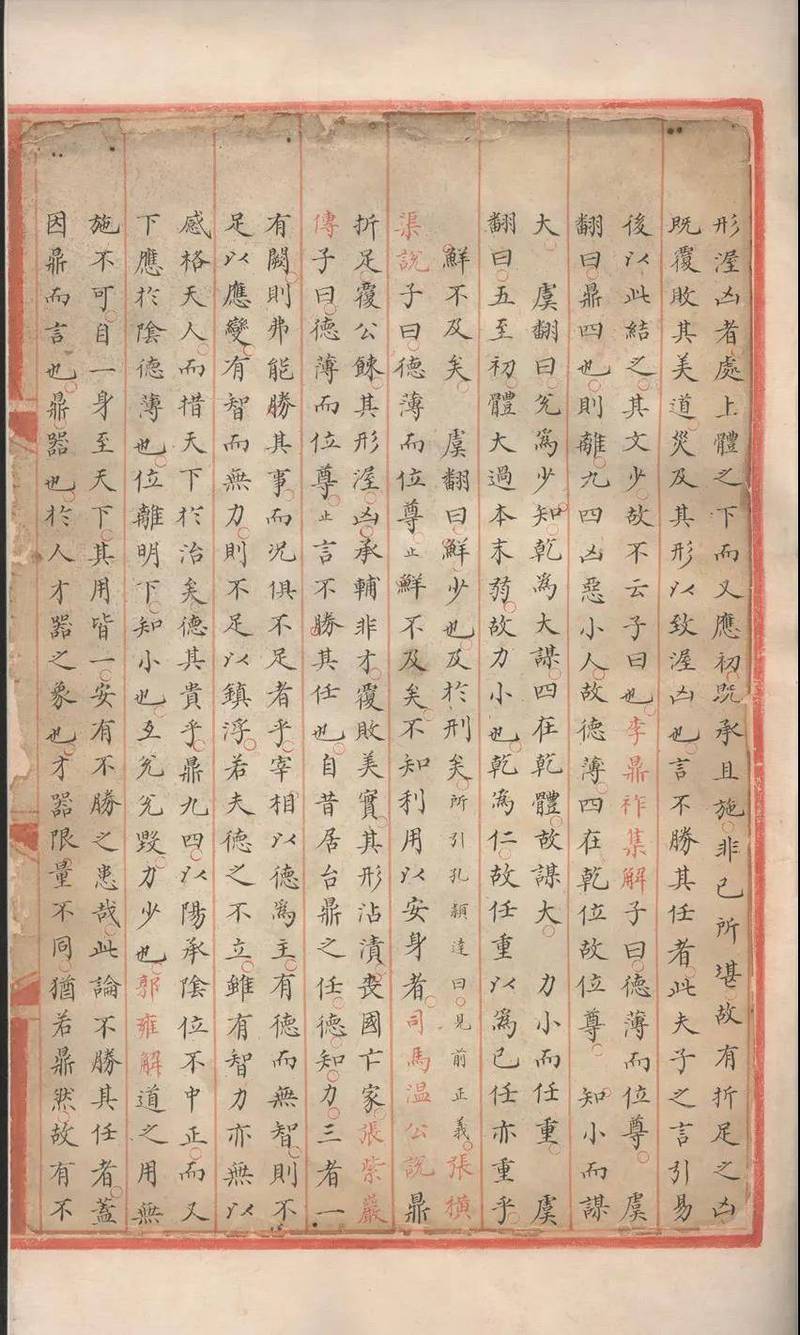 形渥凶者處上體之下而又應初既承且施非己所堪故有折足之凶
既覆敗其美道災及其形以致渥凶也言不勝其任者此夫子之言引易
後以此結之其文少故不云子曰也李鼎祚集解子曰德薄而位尊虞
翻曰鼎四也則離九四凶惡小人故德薄四在乾位故位尊知小而謀
大虞翻曰兊為少知乾為大謀四在乾體故謀大力小而任重虞
翻曰五至初體大過本末弱故力小也乾為仁故任重以為己任亦重乎
鮮不及矣虞翻曰鮮少也及於刑矣所引孔頴達曰見前正義張横
渠說子曰德薄而位尊止鮮不及矣不知利用以安身者司馬温公說鼎
折足覆公餗其形渥凶承輔非才覆敗美實其形沾漬喪國亡家張紫巖
傳子曰德薄而位尊止言不勝其任也自昔居台鼎之任德知力三者一
有闕則弗能勝其事而況俱不足者乎宰相以德為主有德而無智則不
足以應變有智而無力則不足以鎮浮若夫德之不立雖有智力亦無以
感格天人而措天下於治矣德其貴乎鼎九四以陽承陰位不中正而又
下應於陰德薄也位離明下知小也互兊兊毁力少也郭雍解道之用無
施不可自一身至天下其用皆一安有不勝之患哉此論不勝其任者蓋
因鼎而言也鼎器也於人才器之象也才器限量不同猶若鼎然故有不